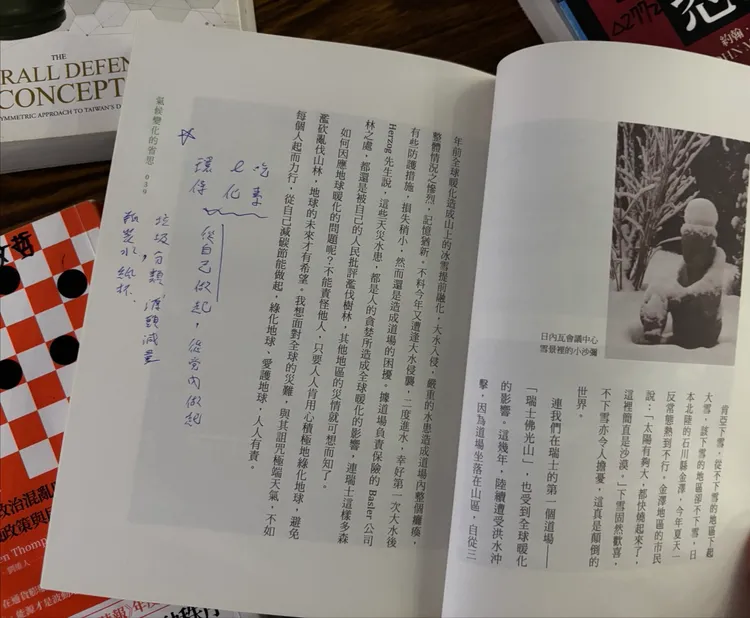 THE
RALL DEFEN
CONCEPT
YMMETRIC APPROACH TO TAIWAN'S D
約翰．
日內瓦會議中心
雪景裡的小沙彌
肯亞下雪，從不下雪的地區下起
大雪，該下雪的地區卻不下雪，日
本北陸的石川縣金澤，今年夏天一
反常態熱到不行。金澤地區的市民
說：「太陽有夠大，都快燒起來了，
這裡簡直是沙漠。」下雪固然歡喜，
不下雪亦令人擔憂，這真是顛倒的
世界。
連我們在瑞士的第一個道場——
「瑞士佛光山」，也受到全球暖化
的影響。這幾年，陸續遭受洪水沖
擊，因為道場坐落在山區，自從三
年前全球暖化造成山上的冰雪提前融化，大水入侵，嚴重的水患造成道場內整個癱瘓，
整體情況之慘烈，記憶猶新。不料今年又遭逢大水侵襲，二度進水，幸好第一次大水後
有些防護措施，損失稍小，然而還是造成道場的困擾。據道場負責保險的 Basler 公司
Herzog 先生說，這些天災水患，都是人的貪婪所造成全球暖化的影響，連瑞士這樣多森
林之處，都還是被自己的人民批評濫伐樹林，其他地區的災情就可想而知了。
如何因應地球暖化的問題呢？不能責怪他人，只要人人肯用心積極地綠化地球，避免
濫砍亂伐山林，地球的未來才有希望。我想面對全球的災難，與其詛咒極端天氣，不如
每個人起而力行，從自己減碳節能做起，綠化地球、愛護地球，人人有責。
吃素
e化
環保
從自己做起，從室內做起
垃圾分類，源頭減量
瓶裝水，紙杯
氣候變化的省思 039
政治混亂
政策與
n Thomp